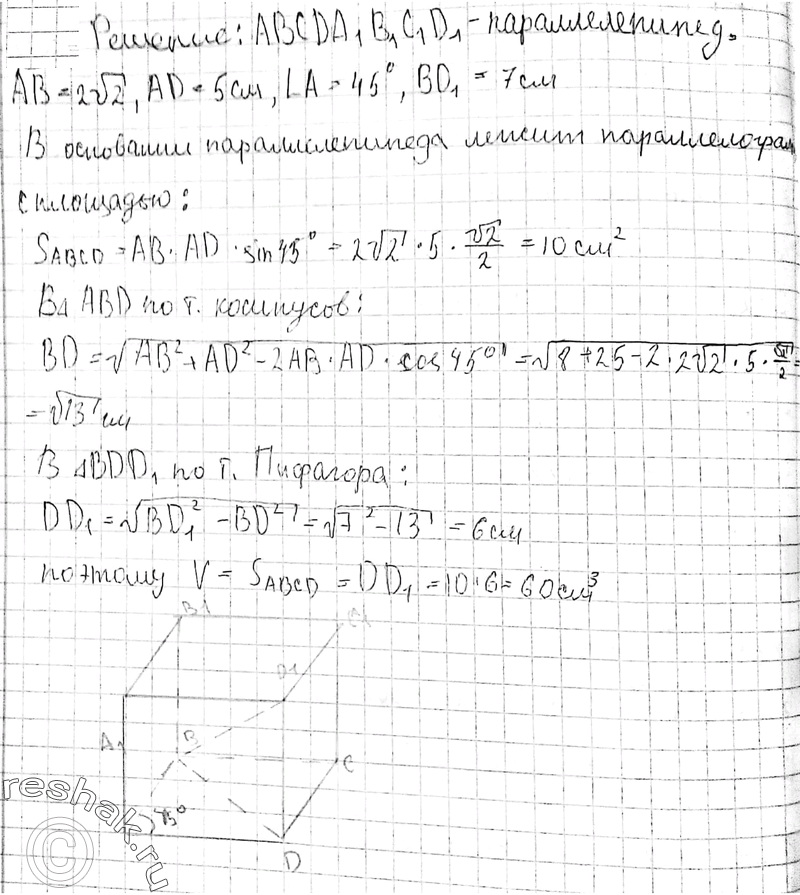 Решение: ABCDA₁B₁C₁D₁ - параллелепипед.
AB = 2√2, AD = 5 см, ∠A = 45°, BD₁ = 7 см
В основании параллелепипеда лежит параллелограм
с площадью:
S_ABCD = AB · AD · sin 45° = 2√2 · 5 · √2/2 = 10 см²
В △ ABD по т. косинусов:
BD = √(AB² + AD² - 2AB · AD · cos 45°) = √(8 + 25 - 2 · 2√2 · 5 · √2/2) =
= √13 см
В △BDD₁ по т. Пифагора:
DD₁ = √(BD₁² - BD²) = √(7² - 13) = 6 см
поэтому V = S_ABCD = DD₁ = 10 · 6 = 60 см³
B1
C1
D1
A1
B
C
45°
D
reshak.ru
©